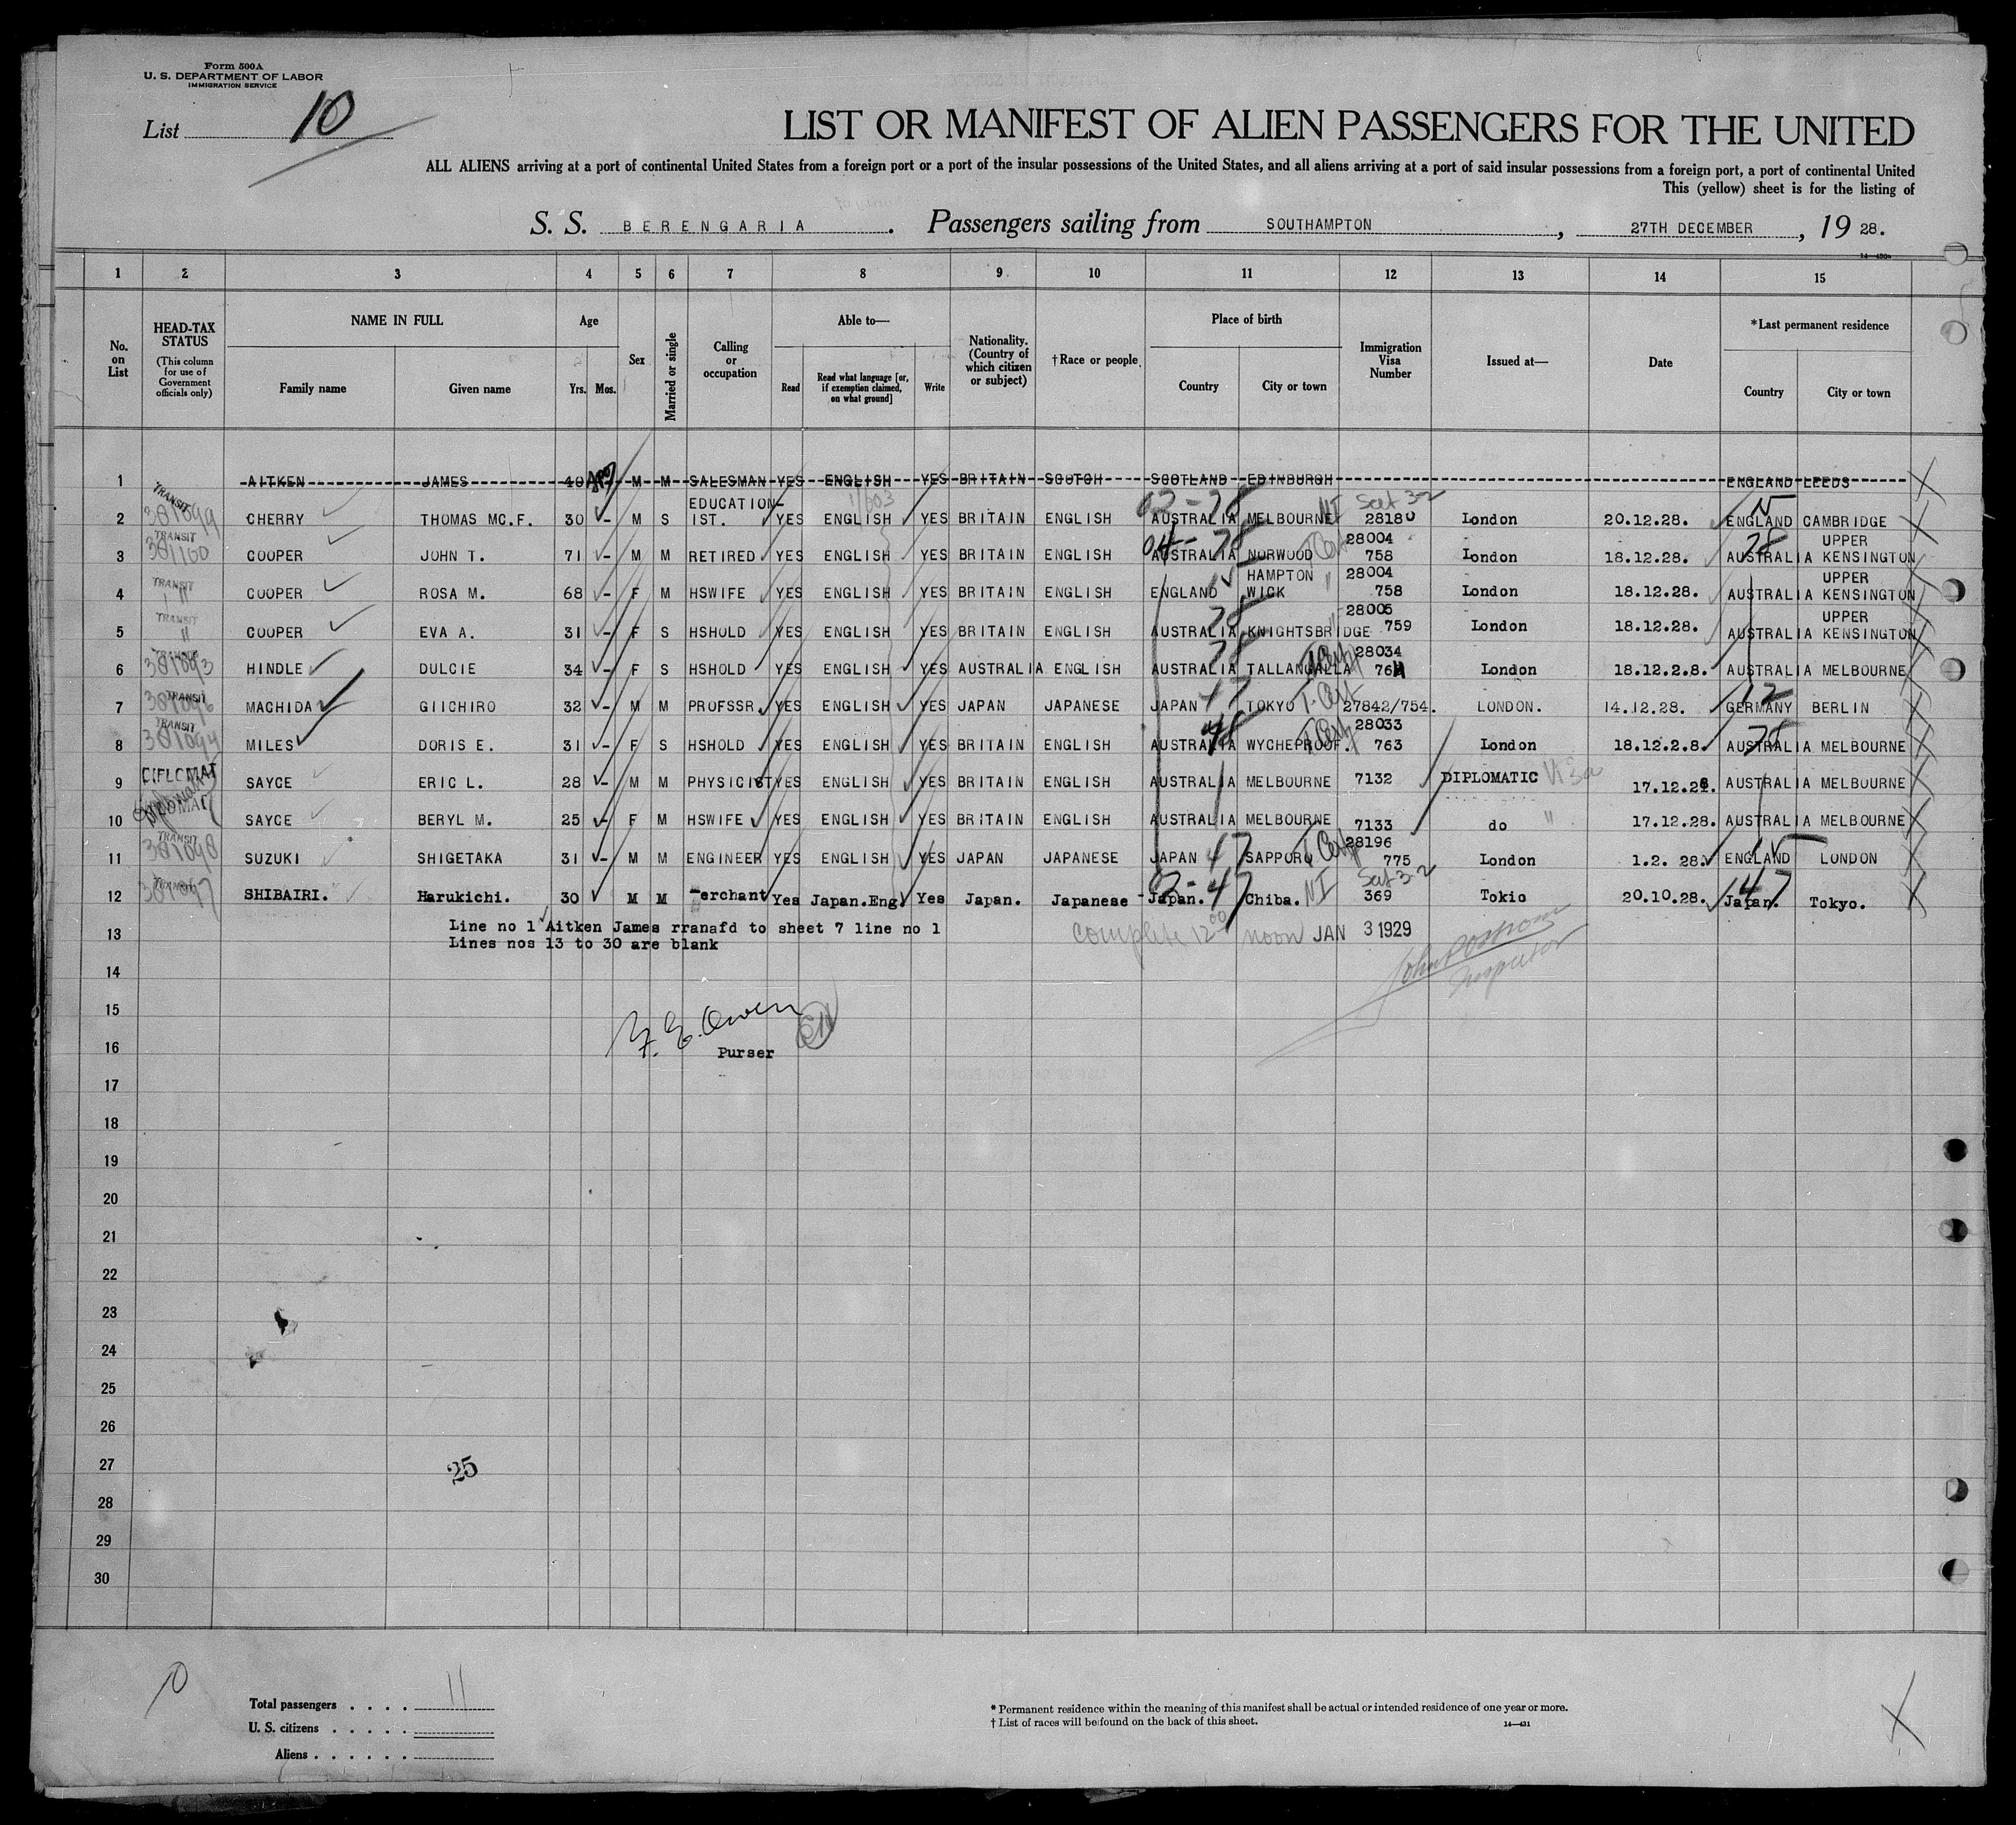 Form 500A
U. S. DEPARTMENT OF LABOR
IMMIGRATION SERVICE
List 10
LIST OR MANIFEST OF ALIEN PASSENGERS FOR THE UNITED
ALL ALIENS arriving at a port of continental United States from a foreign port or a port of the insular possessions of the United States, and all aliens arriving at a port of said insular possessions from a foreign port, a port of continental United
This (yellow) sheet is for the listing of
S. S. BERENGARIA . Passengers sailing from SOUTHAMPTON , 27TH DECEMBER , 19 28.
1 2 3 4 5 6 7 8 9 10 11 12 13 14 15
No. on List
HEAD-TAX STATUS
(This column for use of Government officials only)
NAME IN FULL
Family name Given name
Age
Yrs. Mos.
Sex
Married or single
Calling or occupation
Able to—
Read
Read what language [or, if exemption claimed, on what ground]
Write
Nationality. (Country of which citizen or subject)
†Race or people
Place of birth
Country City or town
Immigration Visa Number
Issued at—
Date
*Last permanent residence
Country City or town
1 AITKEN JAMES 40 M M SALESMAN YES ENGLISH YES BRITAIN SCOTCH SCOTLAND EDINBURGH ENGLAND LEEDS
2 TRANSIT 387099 CHERRY THOMAS MC.F. 30 - M S EDUCATION- IST. YES ENGLISH YES BRITAIN ENGLISH AUSTRALIA MELBOURNE NI Sect 3-2 28180 London 20.12.28. ENGLAND CAMBRIDGE
3 TRANSIT 387100 COOPER JOHN T. 71 - M M RETIRED YES ENGLISH YES BRITAIN ENGLISH AUSTRALIA NORWOOD 28004 758 London 18.12.28. AUSTRALIA UPPER KENSINGTON
4 TRANSIT " COOPER ROSA M. 68 - F M HSWIFE YES ENGLISH YES BRITAIN ENGLISH ENGLAND HAMPTON WICK " 28004 758 London 18.12.28. AUSTRALIA UPPER KENSINGTON
5 TRANSIT " COOPER EVA A. 31 - F S HSHOLD YES ENGLISH YES BRITAIN ENGLISH AUSTRALIA KNIGHTSBRIDGE 28005 759 London 18.12.28. AUSTRALIA UPPER KENSINGTON
6 TRANSIT 387093 HINDLE DULCIE 34 - F S HSHOLD YES ENGLISH YES AUSTRALIA ENGLISH AUSTRALIA TALLANGALLA 28034 764 London 18.12.2.8. AUSTRALIA MELBOURNE
7 TRANSIT 387096 MACHIDA GIICHIRO 32 - M M PROFSSR. YES ENGLISH YES JAPAN JAPANESE JAPAN TOKYO T. Cert 27842/754. LONDON. 14.12.28. GERMANY BERLIN
8 TRANSIT 387094 MILES DORIS E. 31 - F S HSHOLD YES ENGLISH YES BRITAIN ENGLISH AUSTRALIA WYCHEPROOF. 28033 763 London 18.12.2.8. AUSTRALIA MELBOURNE
9 DIPLOMAT SAYCE ERIC L. 28 - M M PHYSICIST YES ENGLISH YES BRITAIN ENGLISH AUSTRALIA MELBOURNE 7132 DIPLOMATIC Visa 17.12.28. AUSTRALIA MELBOURNE
10 DIPLOMAT SAYCE BERYL M. 25 - F M HSWIFE YES ENGLISH YES BRITAIN ENGLISH AUSTRALIA MELBOURNE 7133 do " 17.12.28. AUSTRALIA MELBOURNE
11 TRANSIT 387098 SUZUKI SHIGETAKA 31 - M M ENGINEER YES ENGLISH YES JAPAN JAPANESE JAPAN 47 SAPPORO T Cert 28196 775 London 1.2. 28. ENGLAND LONDON
12 TRANSIT 387097 SHIBAIRI. Harukichi. 30 M M erchant Yes Japan.Eng. Yes Japan. Japanese Japan. 47 Chiba. NI Sect 3-2 369 Tokio 20.10.28. Japan. Tokyo.
13 Line no 1 Aitken James rranafd to sheet 7 line no 1
Lines nos 13 to 30 are blank
complete 12 00 noon JAN 3 1929
Inspector
14
15
F. E. Owen
16 Purser
17
18
19
20
21
22
23
24
25
26
27
25
28
29
30
10
Total passengers . . . . 11
U. S. citizens . . . . .
Aliens . . . . . .
* Permanent residence within the meaning of this manifest shall be actual or intended residence of one year or more.
† List of races will be found on the back of this sheet.
14—431